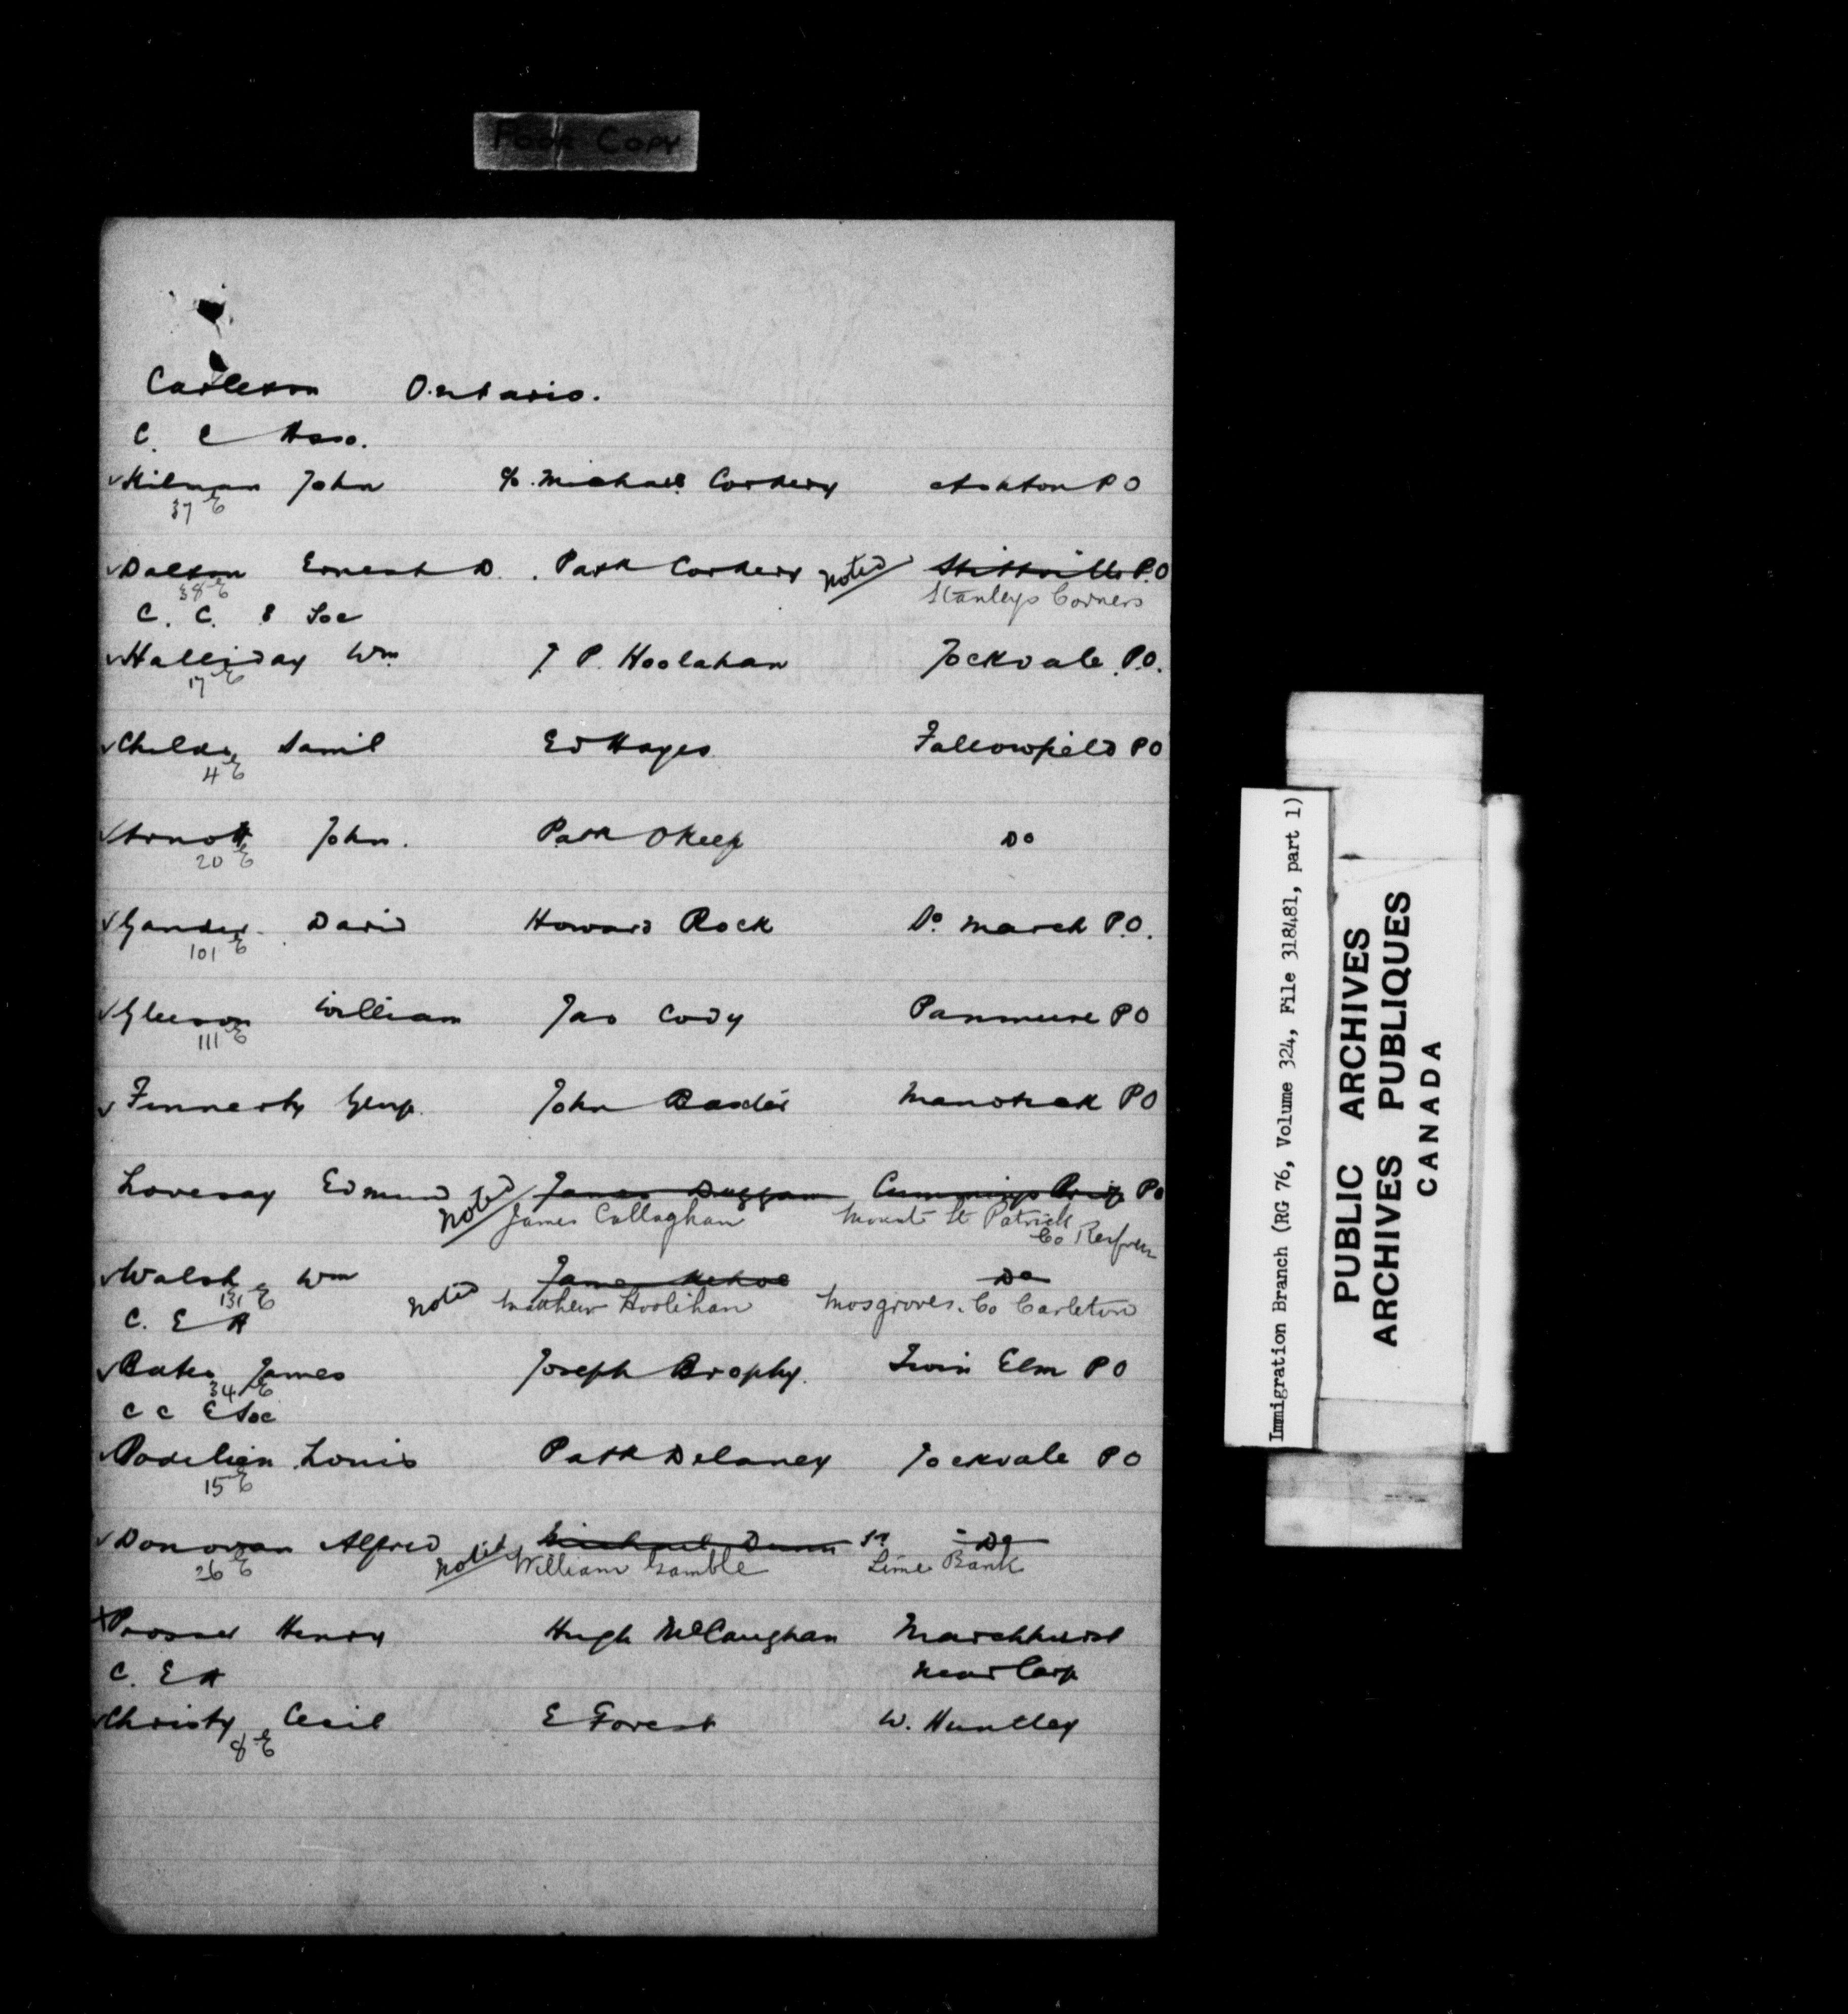 Poor Copy
Carleton Ontario.
C. C Asso.
Kilman John c/o Michael Corkery Ashton P O
37 E
Dalton Ernest D. Patk Corkery noted Stittsville P.O
38 E Stanleys Corners
C. C. E Soc
Halliday Wm J. P. Hoolahan Jockvale P.O.
17 E
Childs Daniel Ed Hayes Fallowfield P O
4 E
Arnott John. Patk OKeefe Do
20 E
Gander David Howard Rock Do March P.O.
101 E
Gleeson William Jas Cody Panmure P O
111 E
Finnerty Geo John Baxter Manotick P O
Lovesay Edmund noted James Duggan Cummings Bridge P O
James Callaghan Mount St Patrick
Co Renfrew
Walsh Wm James Kehoe Do
131 E noted Matthew Hoolihan Mosgroves. Co Carleton
C. E A
Bates James Joseph Brophy. Twin Elm P O
34 E
C C E Soc
Louis Patk Delaney Jockvale P O
15 E
Donovan Alfred noted Michael Dunn Sr Do
26 E William Gamble Lime Bank
Prosser Henry Hugh McCaughan Marchhurst
C. E A near Carp
Christy Cecil E Forest W. Huntley
8 E
Immigration Branch (RG 76, Volume 324, File 318481, part 1)
PUBLIC ARCHIVES
ARCHIVES PUBLIQUES
CANADA